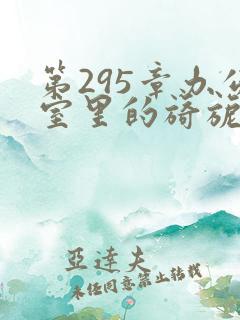 第295章办公
室里的旖旎
亞達夫
未经同意禁止转载